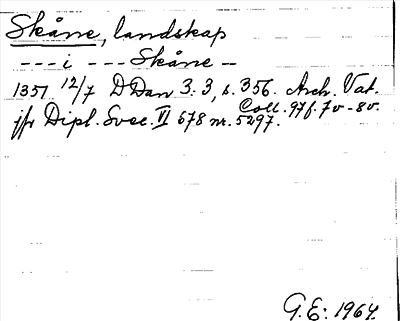 Skåne, landskap
--- i --- Skåne --
1351 12/7 DDan 3:3, s. 356. Arch. Vat.
Coll. 97 f. 7v-8v.
jfr Dipl. Svec. VI 678 nr. 5297.
G.E: 1964.